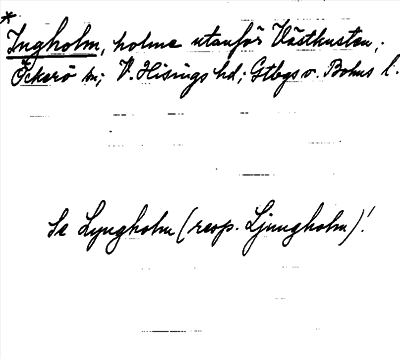 * Ingholm, holme utanför Västkusten,
Öckerö sn; V. Hisings hd; Gtbgs o. Bohus l.
Se Lyngholm (resp. Ljungholm)!